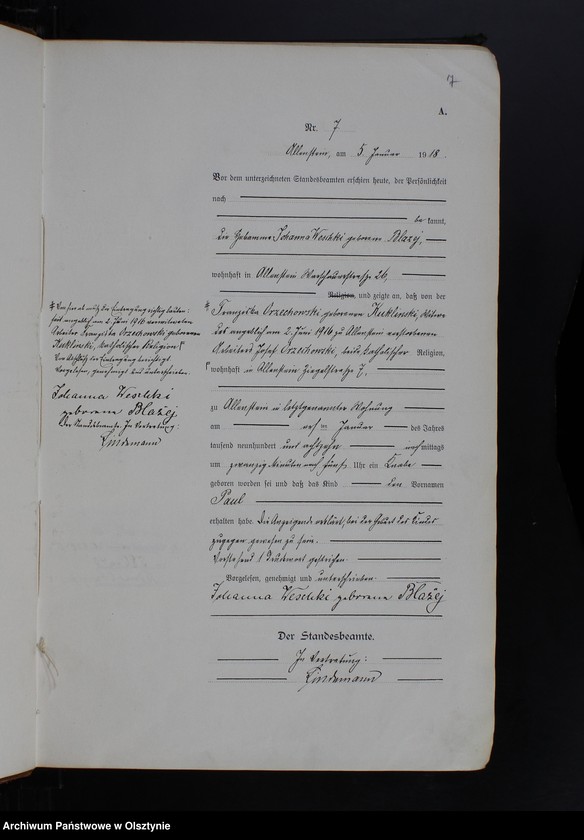 7
A.
Nr. 7
Allenstein, am 5. Januar 1918.
Vor dem unterzeichneten Standesbeamten erschien heute, der Persönlichkeit
nach
be kannt,
die Hebamme Johanna Weschki geborene Blazej,
wohnhaft in Allenstein Warschauerstraße 26,
Religion, und zeigte an, daß von der
* Franziska Orzechowski geborenen Kuklinski, Witwe
des angeblich am 2. Juni 1916 zu Allenstein verstorbenen
Arbeiters Josef Orzechowski, beide katholischer Religion,
wohnhaft in Allenstein Ziegelstraße 7,
zu Allenstein in letztgenannter Wohnung
am Januar des Jahres
tausend neunhundert und achtzehn nachmittags
um zwanzig Minuten nach fünf Uhr ein Knabe
geboren worden sei und daß das Kind den Vornamen
Paul
erhalten habe. Die Anzeigende erklärt, bei der Geburt des Kindes
zugegen gewesen zu sein.
Vorstehend 1 Druckwort gestrichen
Vorgelesen, genehmigt und unterschrieben
Johanna Weschki geborene Blażej
Der Standesbeamte.
In Vertretung:
Lindemann
am 2. Juni 1916 verwitweten
Arbeiter Franziska Orzechowski geborenen
Kuklinski, katholischer Religion
Vor Abschluß der Eintragung berichtigt
Vorgelesen, genehmigt und unterschrieben.
Johanna Weschki
geborene Blażej
Der Standesbeamte. In Vertretung:
Lindemann
Archiwum Państwowe w Olsztynie